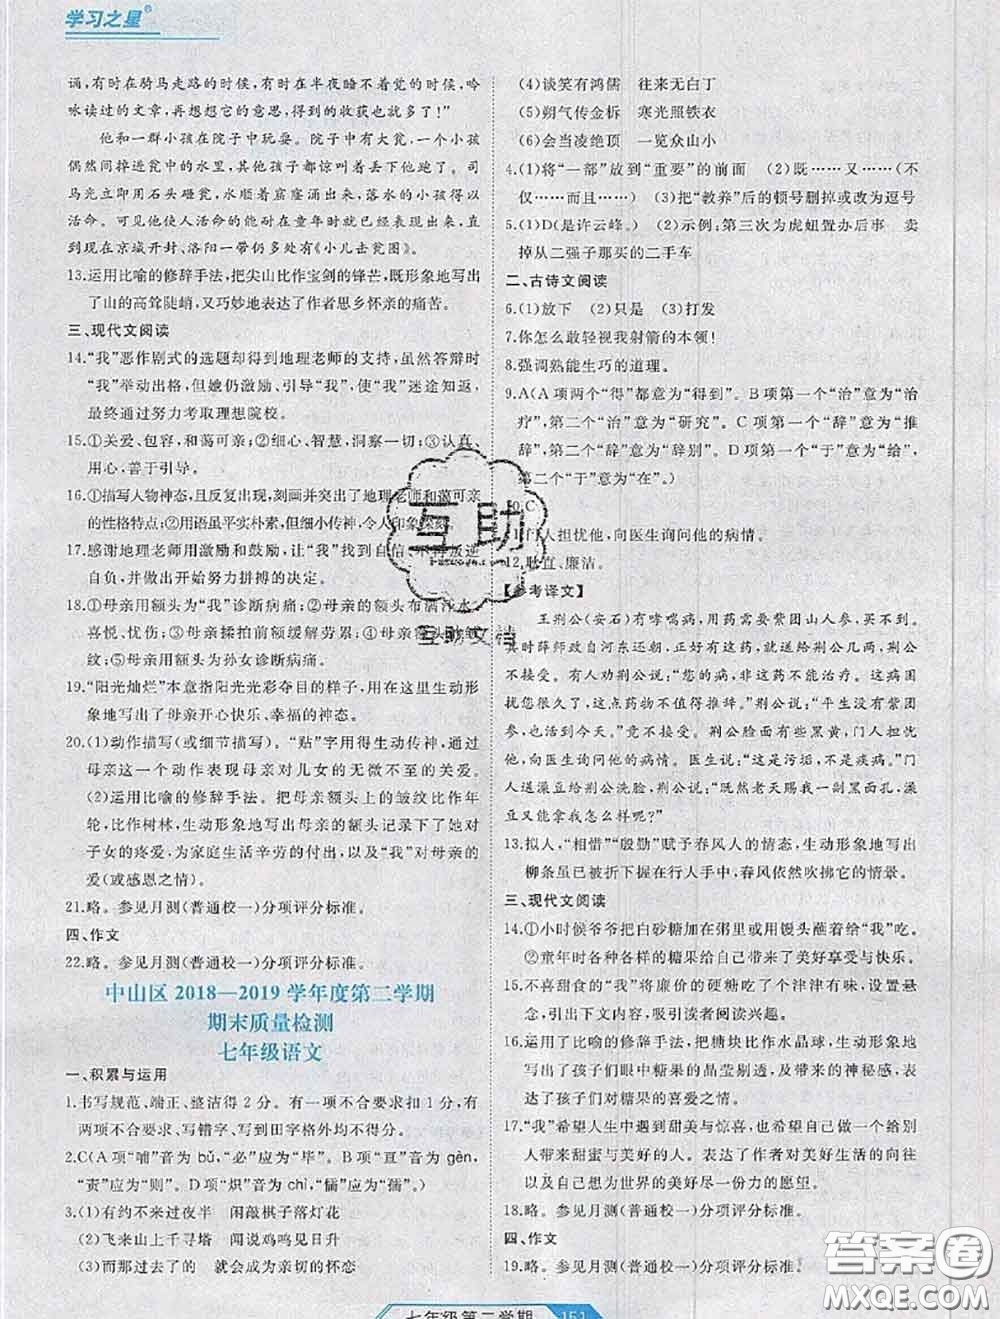 学习之星®
诵,有时在骑马走路的时候,有时在半夜睡不着觉的时候,吟
咏读过的文章,再想想它的意思,得到的收获也就多了!”
他和一群小孩在院子中玩耍。院子中有大瓮,一个小孩
偶然间掉进瓮中的水里,其他孩子都惊叫着丢下他跑了。司
马光立即用石头砸瓮,水顺着窟窿涌出来,落水的小孩得以
活命。可见他使人活命的能耐在童年时就已经展现出来,直
到现在京城开封、洛阳一带仍多处有《小儿击瓮图》。
13.运用比喻的修辞手法,把尖山比作宝剑的锋芒,既形象地写出
了山的高耸陡峭,又巧妙地表达了作者思乡怀亲的痛苦。
三、现代文阅读
14.“我”恶作剧式的选题却得到地理老师的支持,虽然答辩时
“我”举动出格,但她仍激励、引导“我”,使“我”迷途知返,
最终通过努力考取理想院校。
15.①关爱、包容,和蔼可亲;②细心、智慧,洞察一切;③认真、
用心,善于引导。
16.①描写人物神态,且反复出现,刻画并突出了地理老师和蔼可亲
的性格特点;②用语虽平实朴素,但细小传神,令人印象深刻。
17.感谢地理老师用激励和鼓励,让“我”找到自信、不再叛逆
自负,并做出开始努力拼搏的决定。
18.①母亲用额头为“我”诊断病痛;②母亲的额头布满汗水、
喜悦、忧伤;③母亲揉拍前额缓解劳累;④母亲额头的皱
纹;⑤母亲用额头为孙女诊断病痛。
19.“阳光灿烂”本意指阳光光彩夺目的样子,用在这里生动形
象地写出了母亲开心快乐、幸福的神态。
20.(1)动作描写(或细节描写)。“贴”字用得生动传神,通过
母亲这一个动作表现母亲对儿女的无微不至的关爱。
(2)运用比喻的修辞手法。把母亲额头上的皱纹比作年
轮,比作树林,生动形象地写出母亲的额头记录下了她对
子女的疼爱,为家庭生活辛劳的付出,以及“我”对母亲的
爱(或感恩之情)。
21.略。参见月测(普通校一)分项评分标准。
四、作文
22.略。参见月测(普通校一)分项评分标准。
中山区 2018—2019 学年度第二学期
期末质量检测
七年级语文
一、积累与运用
1.书写规范、端正、整洁得 2 分。有一项不合要求扣 1 分,有
两项不合要求、写错字、写到田字格外均不得分。
2.C(A 项“哺”音应为 bǔ,“必”应为“毕”。B 项“亘”音应为 gèn,
“责”应为“则”。D 项“炽”音应为 chì,“儒”应为“孺”。)
3.(1)有约不来过夜半 闲敲棋子落灯花
(2)飞来山上千寻塔 闻说鸡鸣见日升
(3)而那过去了的 就会成为亲切的怀恋
(4)谈笑有鸿儒 往来无白丁
(5)朔气传金柝 寒光照铁衣
(6)会当凌绝顶 一览众山小
4.(1)将“一部”放到“重要”的前面 (2)既……又……(不
仅……而且……) (3)把“教养”后的顿号删掉或改为逗号
5.(1)D(是许云峰。) (2)示例:第三次为虎妞置办后事 卖
掉从二强子那买的二手车
二、古诗文阅读
6.(1)放下 (2)只是 (3)打发
7.你怎么敢轻视我射箭的本领!
8.强调熟能生巧的道理。
9.A(A 项两个“得”都意为“得到”。B 项第一个“治”意为“治
疗”,第二个“治”意为“研究”。C 项第一个“辞”意为“推
辞”,第二个“辞”意为“辞别”。D 项第一个“于”意为“给”,
第二个“于”意为“在”。)
10.C
11.门人担忧他,向医生询问他的病情。
12.耿直、廉洁。
【参考译文】
王荆公(安石)有哮喘病,用药需要紫团山人参,买不到。
其时薛师政自河东还朝,正好有这药,就送给荆公几两,荆公
不接受。有人劝荆公说:“您的病,非这药不可治疗,疾病困
扰您很久了,这点药物不值得推辞。”荆公说:“平生没有紫团
参,也活到今天。”竟不接受。荆公脸面有些黑黄,门人担忧
他,向医生询问他的病情。医生说:“这是污垢,不是疾病。”门
人送进澡豆给荆公洗脸,荆公说:“既然老天赐我一副黑面孔,澡
豆又能拿我怎么样呢?”
13.拟人,“相惜”“殷勤”赋予春风人的情态,生动形象地写出
柳条虽已被折下来拿在行人手中,春风依然吹拂它的情景。
三、现代文阅读
14.①小时候爷爷把白砂糖加在粥里或用馒头蘸着给“我”吃。
②童年时各种各样的糖果给自己带来了美好享受与快乐。
15.不喜甜食的“我”将廉价的硬糖吃了个津津有味,
引出下文内容,吸引读者阅读兴趣。
16.运用了比喻的修辞手法,把糖块比作水晶球,生动形象地
写出了孩子们眼里糖果的晶莹剔透,带来的神秘感,表
达了孩子们对糖果的喜爱之情。
17.“我”希望人生中遇到甜美与惊喜,也希望自己能给别
人带来甜蜜与美好的人。表达了作者对美好生活的向往
以及自己想为世界的美好尽一份力量的愿望。
18.略。参见月测(普通校一)分项评分标准。
四、作文
19.略。参见月测(普通校一)分项评分标准。
互助
互助文档
答案圈
MXQE.COM
七年级第二学期 151